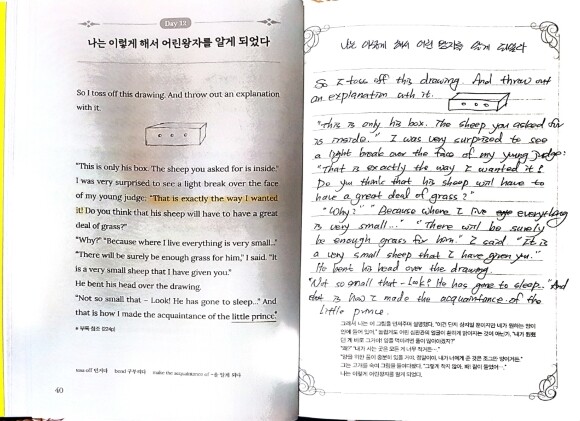 Day 12
나는 이렇게 해서 어린왕자를 알게 되었다
So I toss off this drawing. And throw out an explanation
with it.
"This is only his box. The sheep you asked for is inside."
I was very surprised to see a light break over the face
of my young judge: "That is exactly the way I wanted
it! Do you think that his sheep will have to have a great
deal of grass?"
"Why?" "Because where I live everything is very small..."
"There will be surely be enough grass for him," I said. "It
is a very small sheep that I have given you."
He bent his head over the drawing.
"Not so small that – Look! He has gone to sleep..." And
that is how I made the acquaintance of the little prince.
toss off 던지다 bend 구부리다 make the acquaintance of ~을 알게 되다
40
나는 이렇게 해서 어린 왕자를 알게 되었다
So I toss off this drawing. And throw out
an explanation with it.
"This is only his box. The sheep you asked for
is inside." I was very surprised to see
a light break over the face of my young judge:
"That is exactly the way I wanted it!
Do you think that his sheep will have to
have a great deal of grass?"
"Why?" "Because where I live everything
is very small..." "There will be surely
be enough grass for him." I said "It is
a very small sheep that I have given you."
He bent his head over the drawing.
"Not so small that - Look! He has gone to sleep.." And
that is how I made the acquaintance of the
little prince.
그래서 나는 이 그림을 던져주며 설명했다. "이건 단지 상자일 뿐이지만 네가 원하는 양이
안에 들어 있어." 놀랍게도 어린 심판관의 얼굴이 환하게 밝아지는 것이 아닌가. "내가 원했
던 게 바로 그거야! 양을 먹이려면 풀이 많아야겠지?"
"왜?" "내가 사는 곳은 모든 게 너무 작거든…"
"양을 위한 풀이 충분히 있을 거야, 정말이야. 내가 너에게 준 것은 조그만 양이거든."
그는 고개를 숙여 그림을 들여다봤다. "그렇게 작지 않아. 봐! 잠이 들었어…"
나는 이렇게 어린왕자를 알게 되었다.